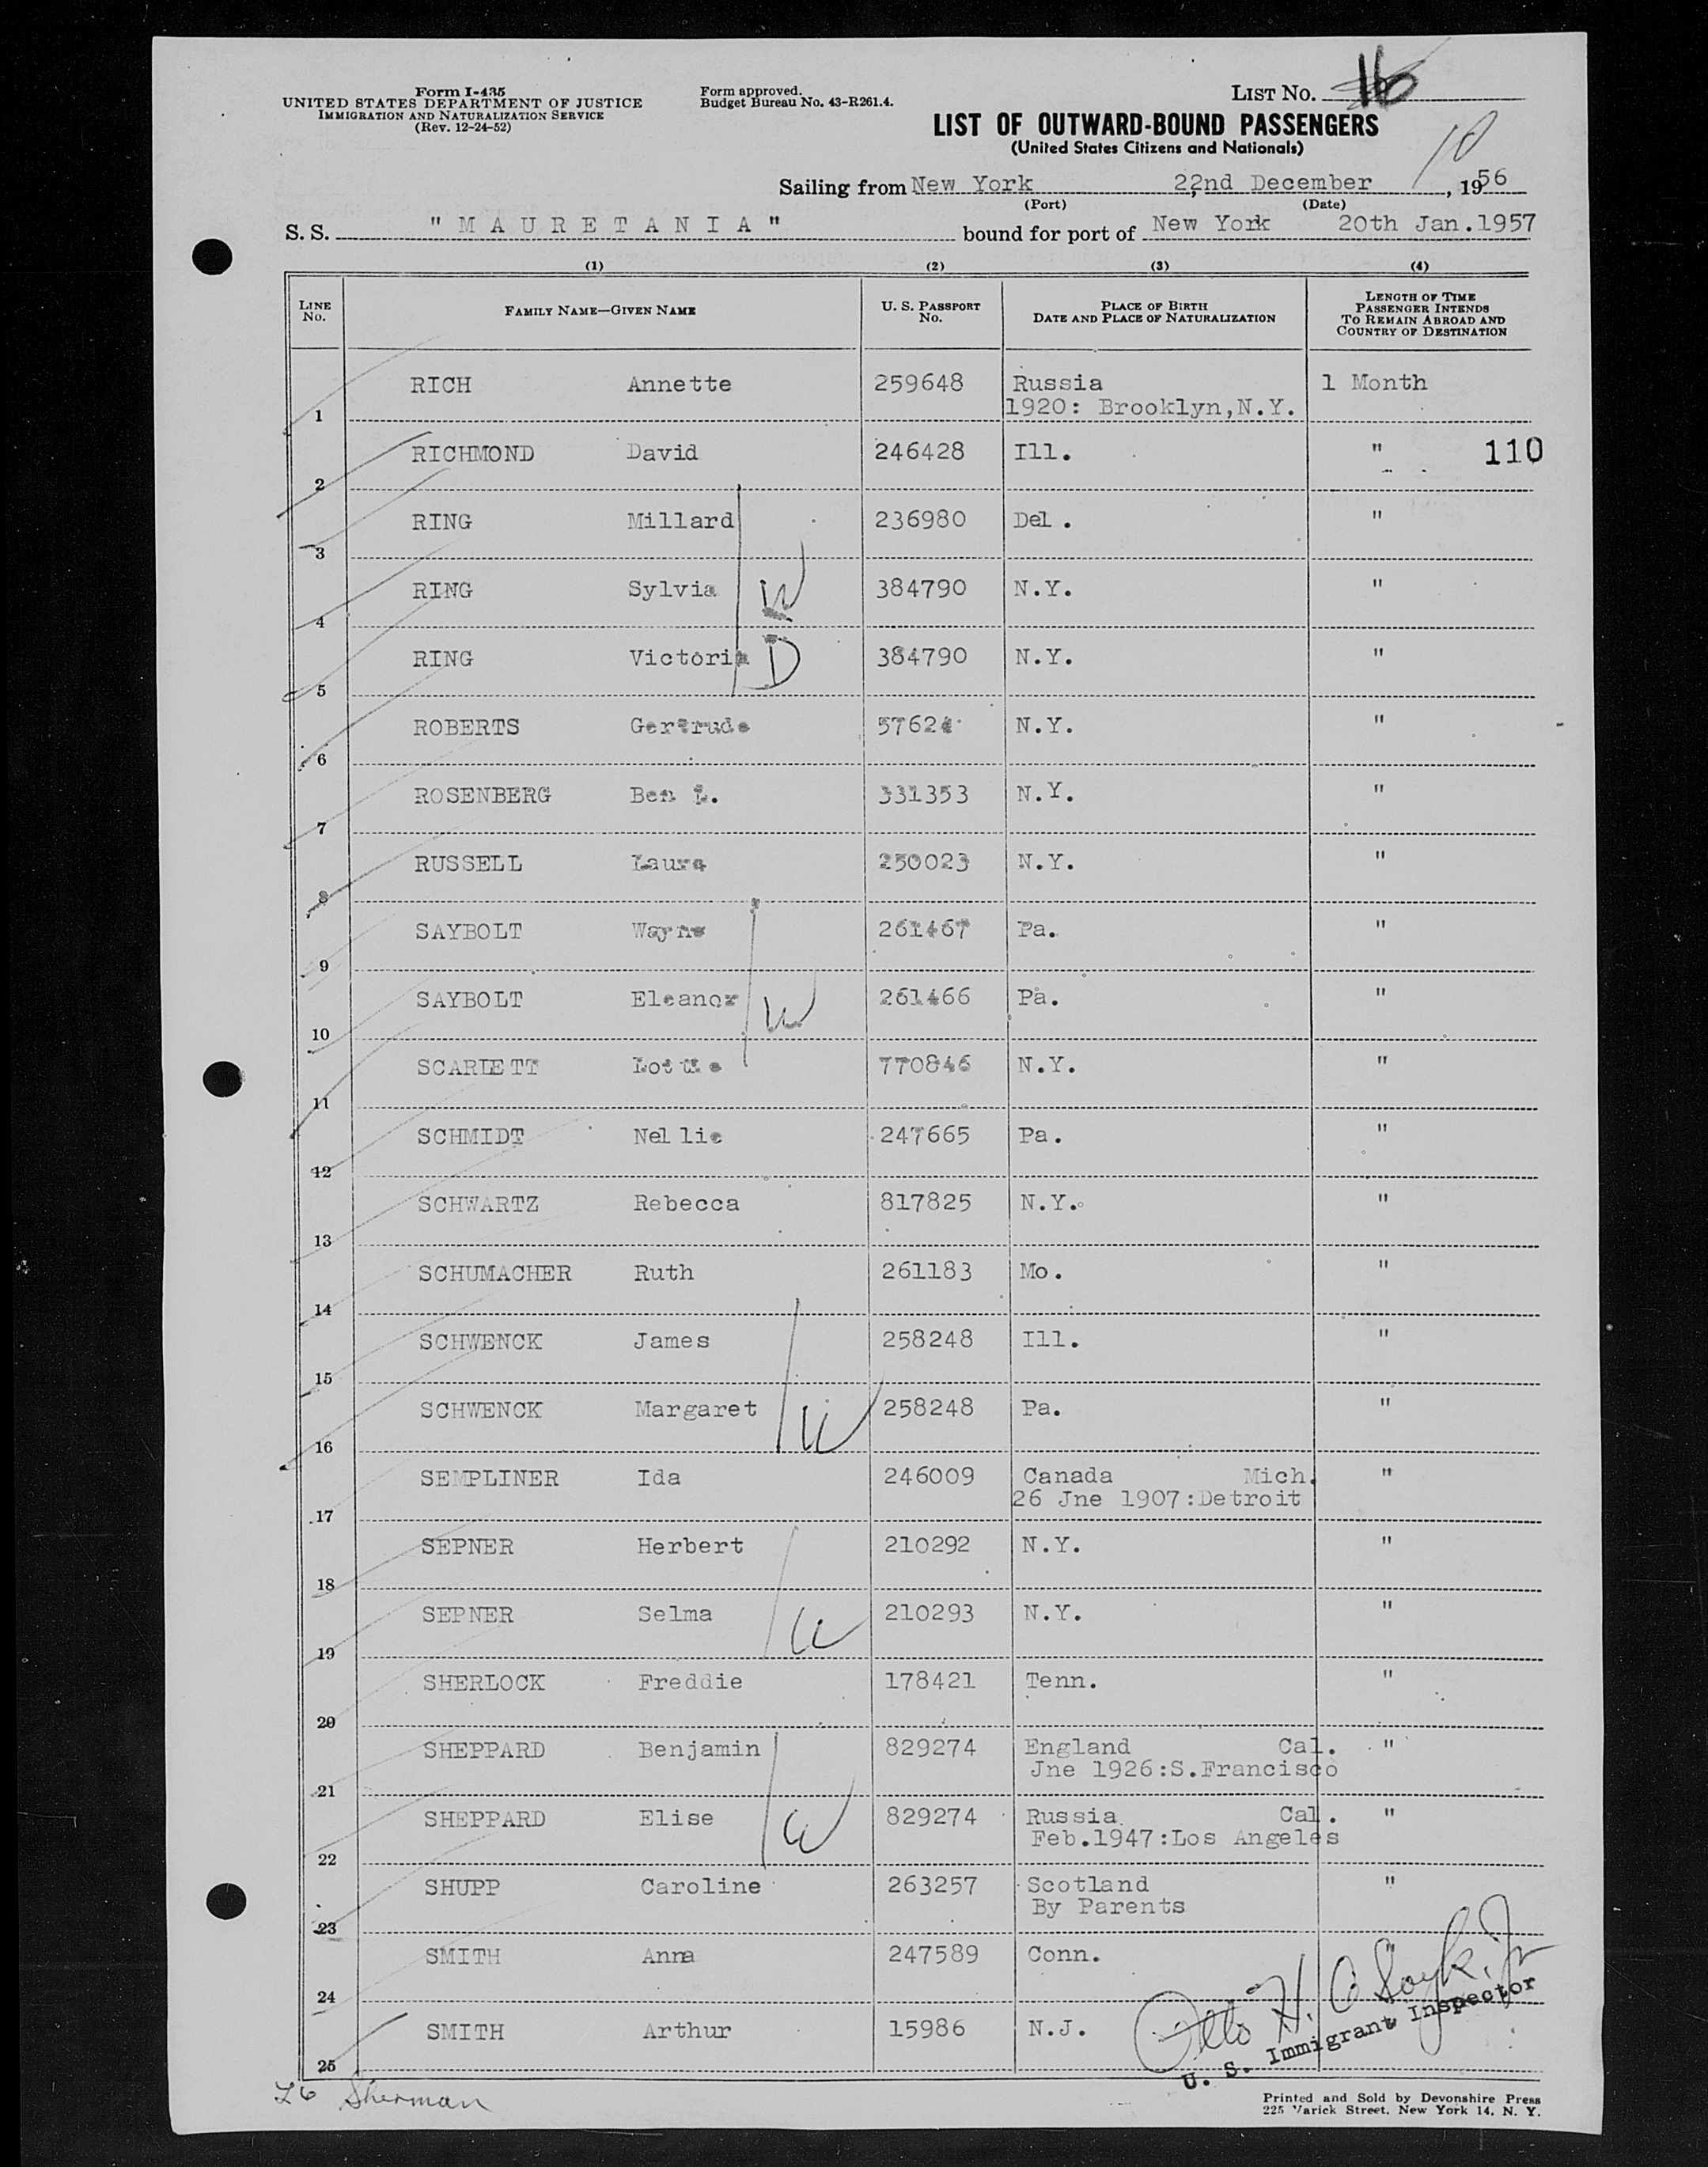 Form I-435
UNITED STATES DEPARTMENT OF JUSTICE
IMMIGRATION AND NATURALIZATION SERVICE
(Rev. 12-24-52)
Form approved.
Budget Bureau No. 43-R261.4.
LIST No. 16
LIST OF OUTWARD-BOUND PASSENGERS
(United States Citizens and Nationals)
10
Sailing from New York 22nd December, 1956
(Port) (Date)
S. S. "MAURETANIA" bound for port of New York 20th Jan. 1957
(1) (2) (3) (4)
LINE No. FAMILY NAME—GIVEN NAME U. S. PASSPORT No. PLACE OF BIRTH DATE AND PLACE OF NATURALIZATION LENGTH OF TIME PASSENGER INTENDS TO REMAIN ABROAD AND COUNTRY OF DESTINATION
1 RICH Annette 259648 Russia 1 Month
1920: Brooklyn,N.Y.
2 RICHMOND David 246428 Ill. " 110
3 RING Millard 236980 Del. "
4 RING Sylvia W 384790 N.Y. "
5 RING Victoria D 384790 N.Y. "
6 ROBERTS Gertrude 57624 N.Y. "
7 ROSENBERG Ben L. 331353 N.Y. "
8 RUSSELL Laura 250023 N.Y. "
9 SAYBOLT Wayne 261467 Pa. "
10 SAYBOLT Eleanor W 261466 Pa. "
11 SCARLETT Lottie 770846 N.Y. "
12 SCHMIDT Nellie 247665 Pa. "
13 SCHWARTZ Rebecca 817825 N.Y. "
14 SCHUMACHER Ruth 261183 Mo. "
15 SCHWENCK James 258248 Ill. "
16 SCHWENCK Margaret W 258248 Pa. "
17 SEMPLINER Ida 246009 Canada Mich. "
26 Jne 1907:Detroit
18 SEPNER Herbert 210292 N.Y. "
19 SEPNER Selma W 210293 N.Y. "
20 SHERLOCK Freddie 178421 Tenn. "
21 SHEPPARD Benjamin 829274 England Cal. "
Jne 1926:S.Francisco
22 SHEPPARD Elise W 829274 Russia Cal. "
Feb.1947:Los Angeles
23 SHUPP Caroline 263257 Scotland "
By Parents
24 SMITH Anna 247589 Conn.
25 SMITH Arthur 15986 N.J.
Otto H.
U. S. Immigrant Inspector
26 Sherman
Printed and Sold by Devonshire Press
225 Varick Street, New York 14, N. Y.